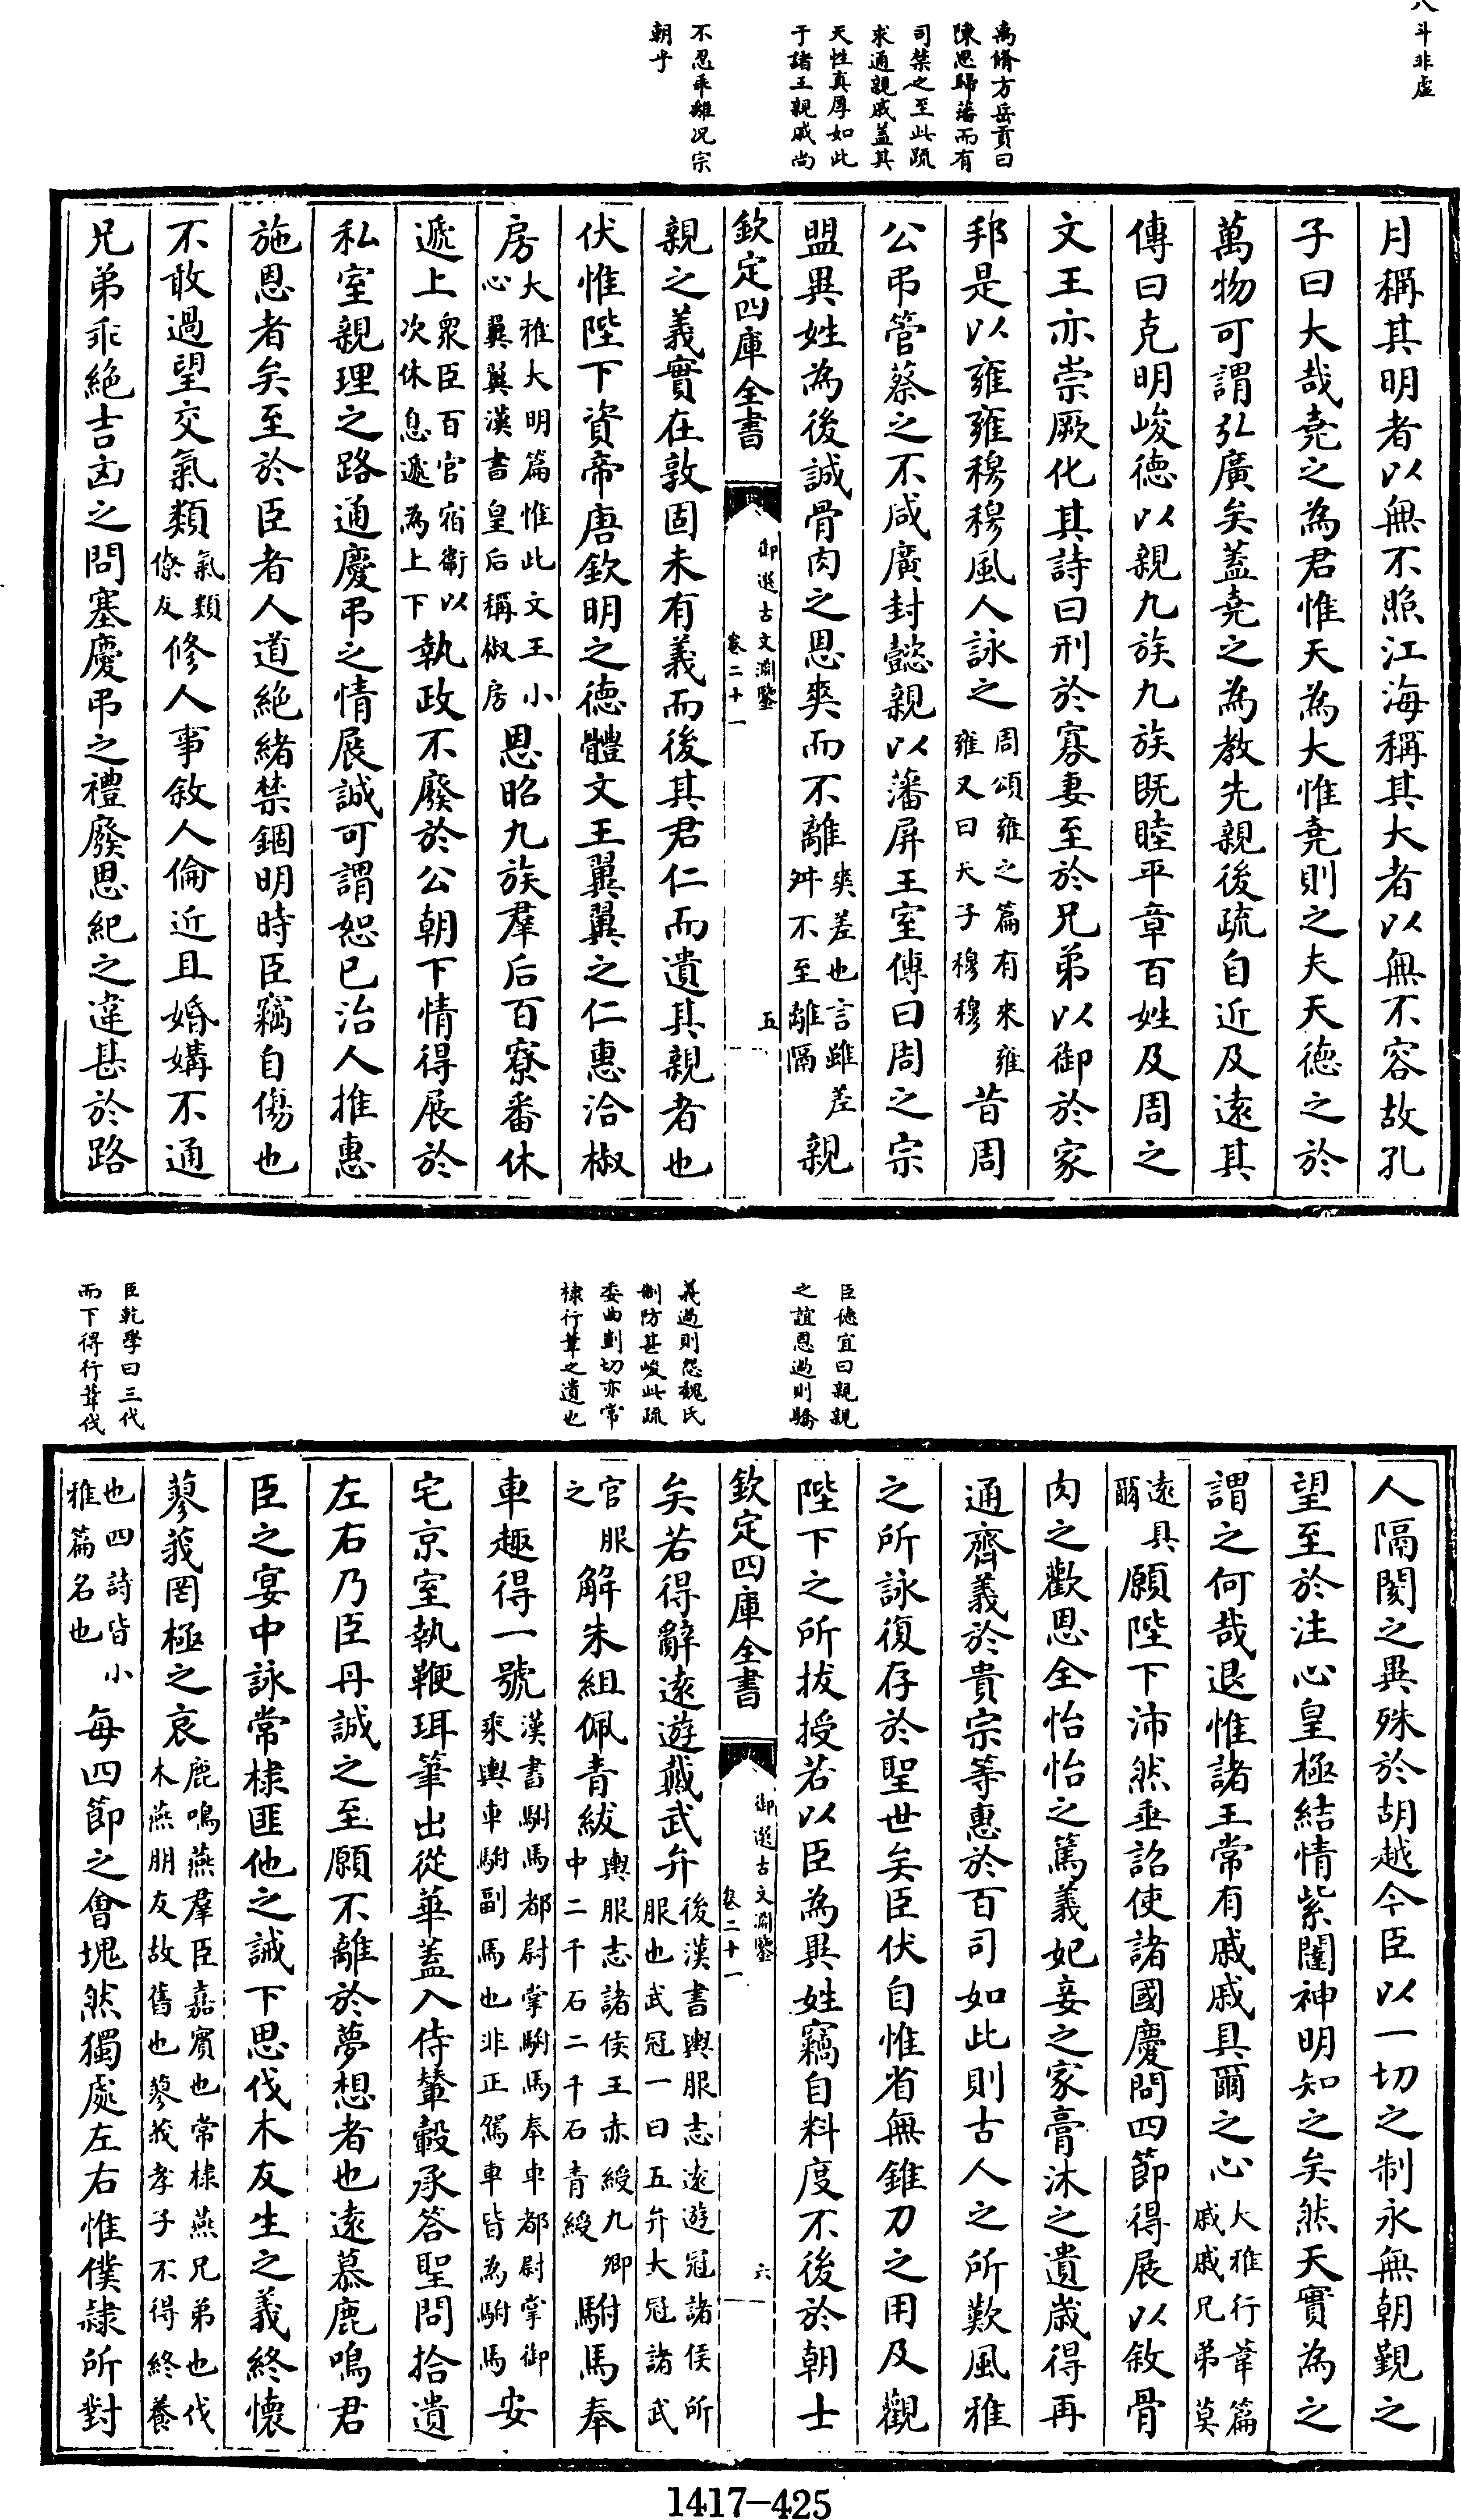 八斗非虛
萬脩方岳貢曰
陳思歸藩而有
司禁之至此疏
求通親戚蓋其
天性真厚如此
于諸王親戚尚
不忍乖離况宗
朝乎
月稱其明者以無不照江海稱其大者以無不容故孔
子曰大哉堯之為君惟天為大惟堯則之夫天德之於
萬物可謂弘廣矣蓋堯之為教先親後疏自近及遠其
傳曰克明峻德以親九族九族既睦平章百姓及周之
文王亦崇厥化其詩曰刑於寡妻至於兄弟以御於家
邦是以雍雍穆穆風人詠之周頌雍之篇有來雍雍又曰天子穆穆昔周
公弔管蔡之不咸廣封懿親以藩屏王室傳曰周之宗
盟異姓為後誠骨肉之恩爽而不離爽差也言雖差舛不至離隔親
欽定四庫全書 御選古文淵鑒 卷二十一 五
親之義實在敦固未有義而後其君仁而遺其親者也
伏惟陛下資帝唐欽明之德體文王翼翼之仁惠洽椒
房大雅大明篇惟此文王小心翼翼漢書皇后稱椒房恩昭九族羣后百寮番休
遞上衆臣百官宿衞以次休息遞為上下執政不廢於公朝下情得展於
私室親理之路通慶弔之情展誠可謂恕已治人推惠
施恩者矣至於臣者人道絶緒禁錮明時臣竊自傷也
不敢過望交氣類氣類僚友修人事敘人倫近且婚媾不通
兄弟乖絶吉凶之問塞慶弔之禮廢恩紀之違甚於路
臣德宜曰親親
之誼恩過則驕
義過則怨魏氏
制防甚峻此疏
委曲剴切亦常
棣行葦之遺也
臣乾學曰三代
而下得行葦伐
人隔閡之異殊於胡越今臣以一切之制永無朝覲之
望至於注心皇極結情紫闥神明知之矣然天實為之
謂之何哉退惟諸王常有戚戚具爾之心大雅行葦篇戚戚兄弟莫
遠具爾願陛下沛然垂詔使諸國慶問四節得展以敘骨
肉之歡恩全怡怡之篤義妃妾之家膏沐之遺歲得再
通齊義於貴宗等惠於百司如此則古人之所歎風雅
之所詠復存於聖世矣臣伏自惟省無錐刀之用及觀
陛下之所拔授若以臣為異姓竊自料度不後於朝士
欽定四庫全書 御選古文淵鑒 卷二十一 六
矣若得辭遠遊戴武弁後漢書輿服志遠遊冠諸侯所服也武冠一曰五弁大冠諸武
官服之解朱組佩青紱輿服志諸侯王赤綬九卿中二千石二千石青綬駙馬奉
車趣得一號漢書駙馬都尉掌駙馬奉車都尉掌御乘輿車駙副馬也非正駕車皆為駙馬安
宅京室執鞭珥筆出從華蓋入侍輦轂承答聖問拾遺
左右乃臣丹誠之至願不離於夢想者也遠慕鹿鳴君
臣之宴中詠常棣匪他之誡下思伐木友生之義終懷
蓼莪罔極之哀鹿鳴燕羣臣嘉賓也常棣燕兄弟也伐木燕朋友故舊也蓼莪孝子不得終養
也四詩皆小雅篇名也每四節之會塊然獨處左右惟僕隸所對
1417—425